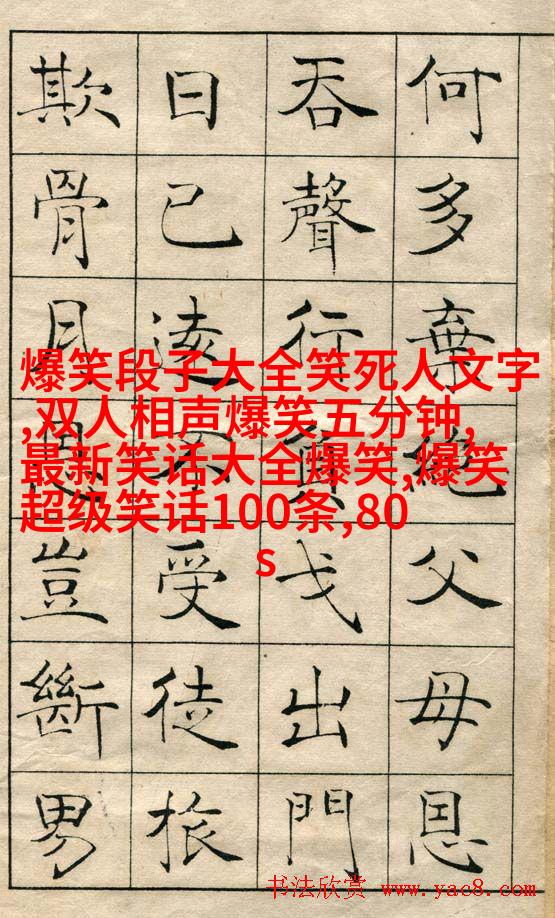 何多棄絕父母恩
吞聲行負戈出門
日已遠不受徒旅
欺骨肉恩豈斷男
爆笑段子大全笑死人文字
,双人相声爆笑五分钟,
最新笑话大全爆笑,爆笑
超级笑话100条,80
s
书法欣赏 www.yac8.com